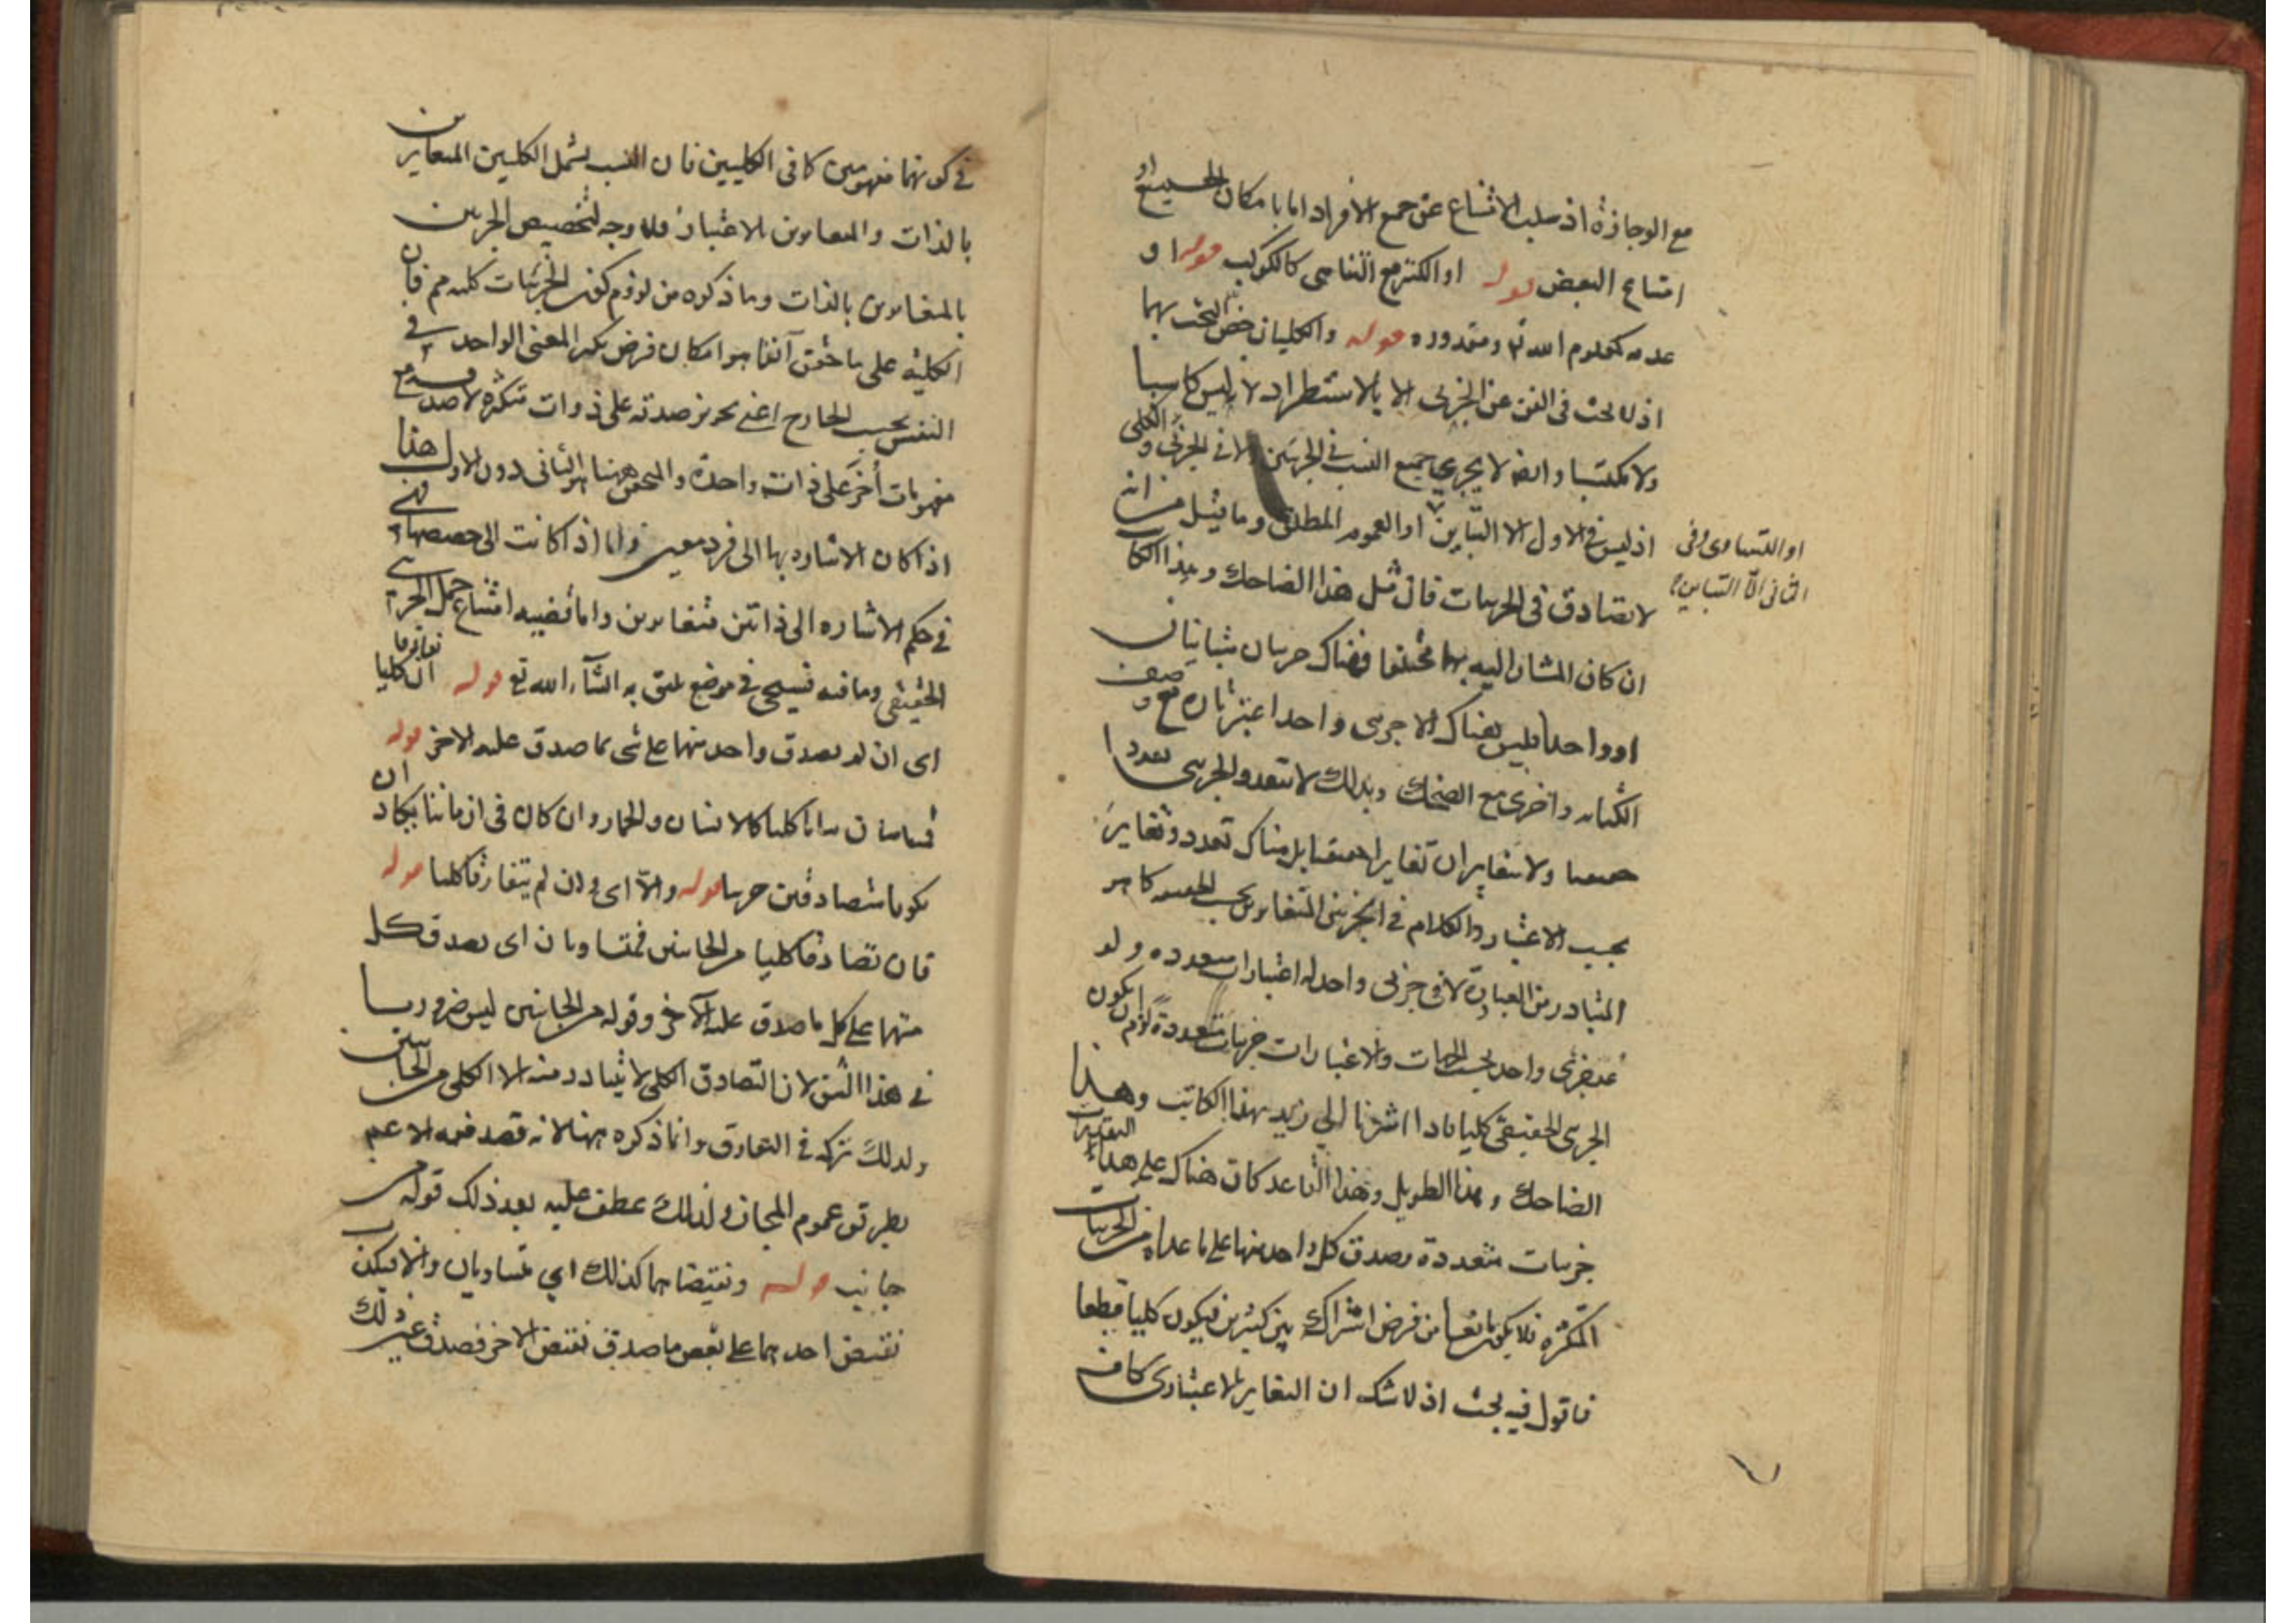 مع الوجازة اذ سلب الامتناع عن جمع الافراد اما بامكان الجميع او
امتناع البعض قوله او الكثير مع التناهى كالكواكب قوله او
عدمه كمعلوم الله تع ومقدوره قوله والكليان خص البحث بهما
اذ لا بحث فى الفن عن الجزئى الا بالاستطراد لانه ليس كاسبا
ولا مكتسبا وايضه لا يجرى جميع النسب فى الجزئين ولا فى الجزئى والكلى
اذ ليس فى الاول الا التباين او العموم المطلق وما قيل من انه
او التساوى وفى
الثانى الا التباين
لا تصادق فى الجزئيات فان مثل هذا الضاحك وهذا الكاتب
ان كان المشار اليه بهما مختلفا فهناك جزئيان متباينان
او واحدا فليس هناك الا جزئى واحد اعتبر تارة مع وصف
الكتابه واخرى مع الضحك وبذلك لا يتعدد الجزئى تعددا
حقيقيا ولا يتغايران تغايرا حقيقيا بل هناك تعدد وتغاير
بحسب الاعتبار والكلام فى الجزئين المتغايرين بحسب الحقيقه كما هو
المتبادر من العبارة لا فى جزئى واحد له اعتبارات متعدده ولو
عد جزئى واحد بحسب الجهات والاعتبارات جزئيات متعددة لزم ان يكون
الجزئى الحقيقى كليا فاذا اشرنا الى زيد بهذا الكاتب وهذا
الضاحك وهذا الطويل وهذا القاعد كان هناك على هذا التقدير
جزئيات متعددة يصدق كل واحد منها على ما عداه من الجزئيات
المتكثره فلا يكون مانعا من فرض اشتراكه بين كثيرين فيكون كليا قطعا
فاقول فيه بحث اذ لا شك ان التغاير بالاعتبارى كاف
فى كونهما مفهومين كما فى الكليين فان النسب يشمل الكليين المتغايرين
بالذات والمتغايرين بالاعتبار فلا وجه لتخصيص الجزئين
بالمتغايرين بالذات وما ذكره من لزوم كون الجزئيات كليه مم فان
الكليه على ما حقق آنفا هو امكان فرض تكثر المعنى الواحد فى
النفس بحسب الخارج اعنى تجويز صدقه على ذوات متكثره لا صدقه مع
مفهومات أخر على ذات واحدة والمتحقق ههنا هو الثانى دون الاول هذا
اذا كان الاشاره بها الى فرد معين واما اذا كانت الى حصصها فهى
فى حكم الاشاره الى ذاتين متغايرين واما قضيه امتناع حمل الجزئى
الحقيقى وما فيه فسيجئ فى موضع يليق به انشآء الله تع قوله ان تفارقا كليا
اى ان لم يصدق واحد منهما على شى مما صدق عليه الاخر قوله
فمتباينان تباينا كليا كالانسان والحمار وان كان فى ازماننا يكاد ان
يكونا متصادقين جزئيا قوله والا اى وان لم يتفارقا كليا قوله
فان تصادقا كليا من الجانبين فمتساويان اى يصدق كل
منهما على كل ما صدق عليه الآخر وقوله من الجانبين ليس ضروريا
فى هذا الشق لان التصادق الكلى لا يتبادر منه الا الكلى من الجانبين
ولذلك تركه فى التفارق وانما ذكره ههنا لانه قصد فيه الاعم
بطريق عموم المجاز ولذلك عطف عليه بعد ذلك قوله من
جانب قوله ونقيضاهما كذلك اى متساويان والا فيكن
نقيض احدهما على بعض ما صدق نقيض الاخر فصدق عين ذلك